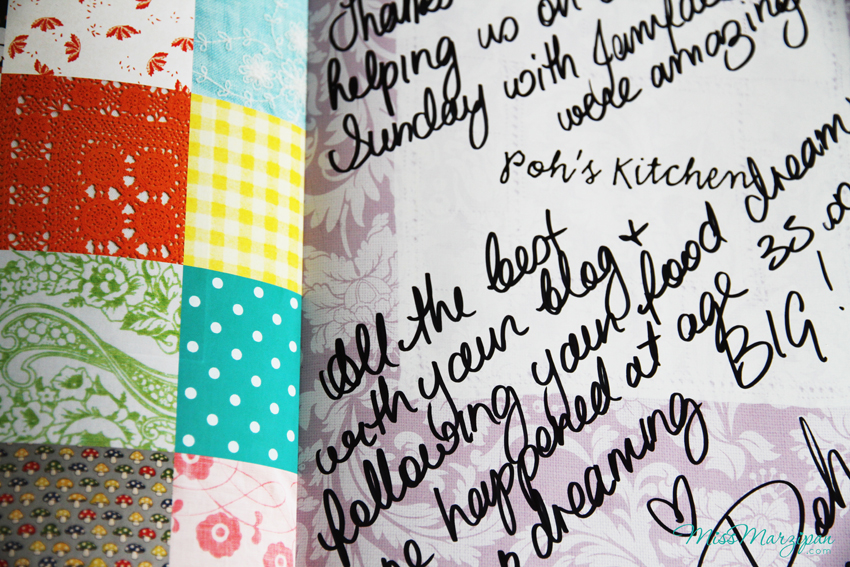 Thanks
helping us on
Sunday with
were amazing
Poh's Kitchen
All the best
with your blog +
following your food dream
happened at age 35.
BIG!
dreaming
♡ Poh
MissMarzipan
.com